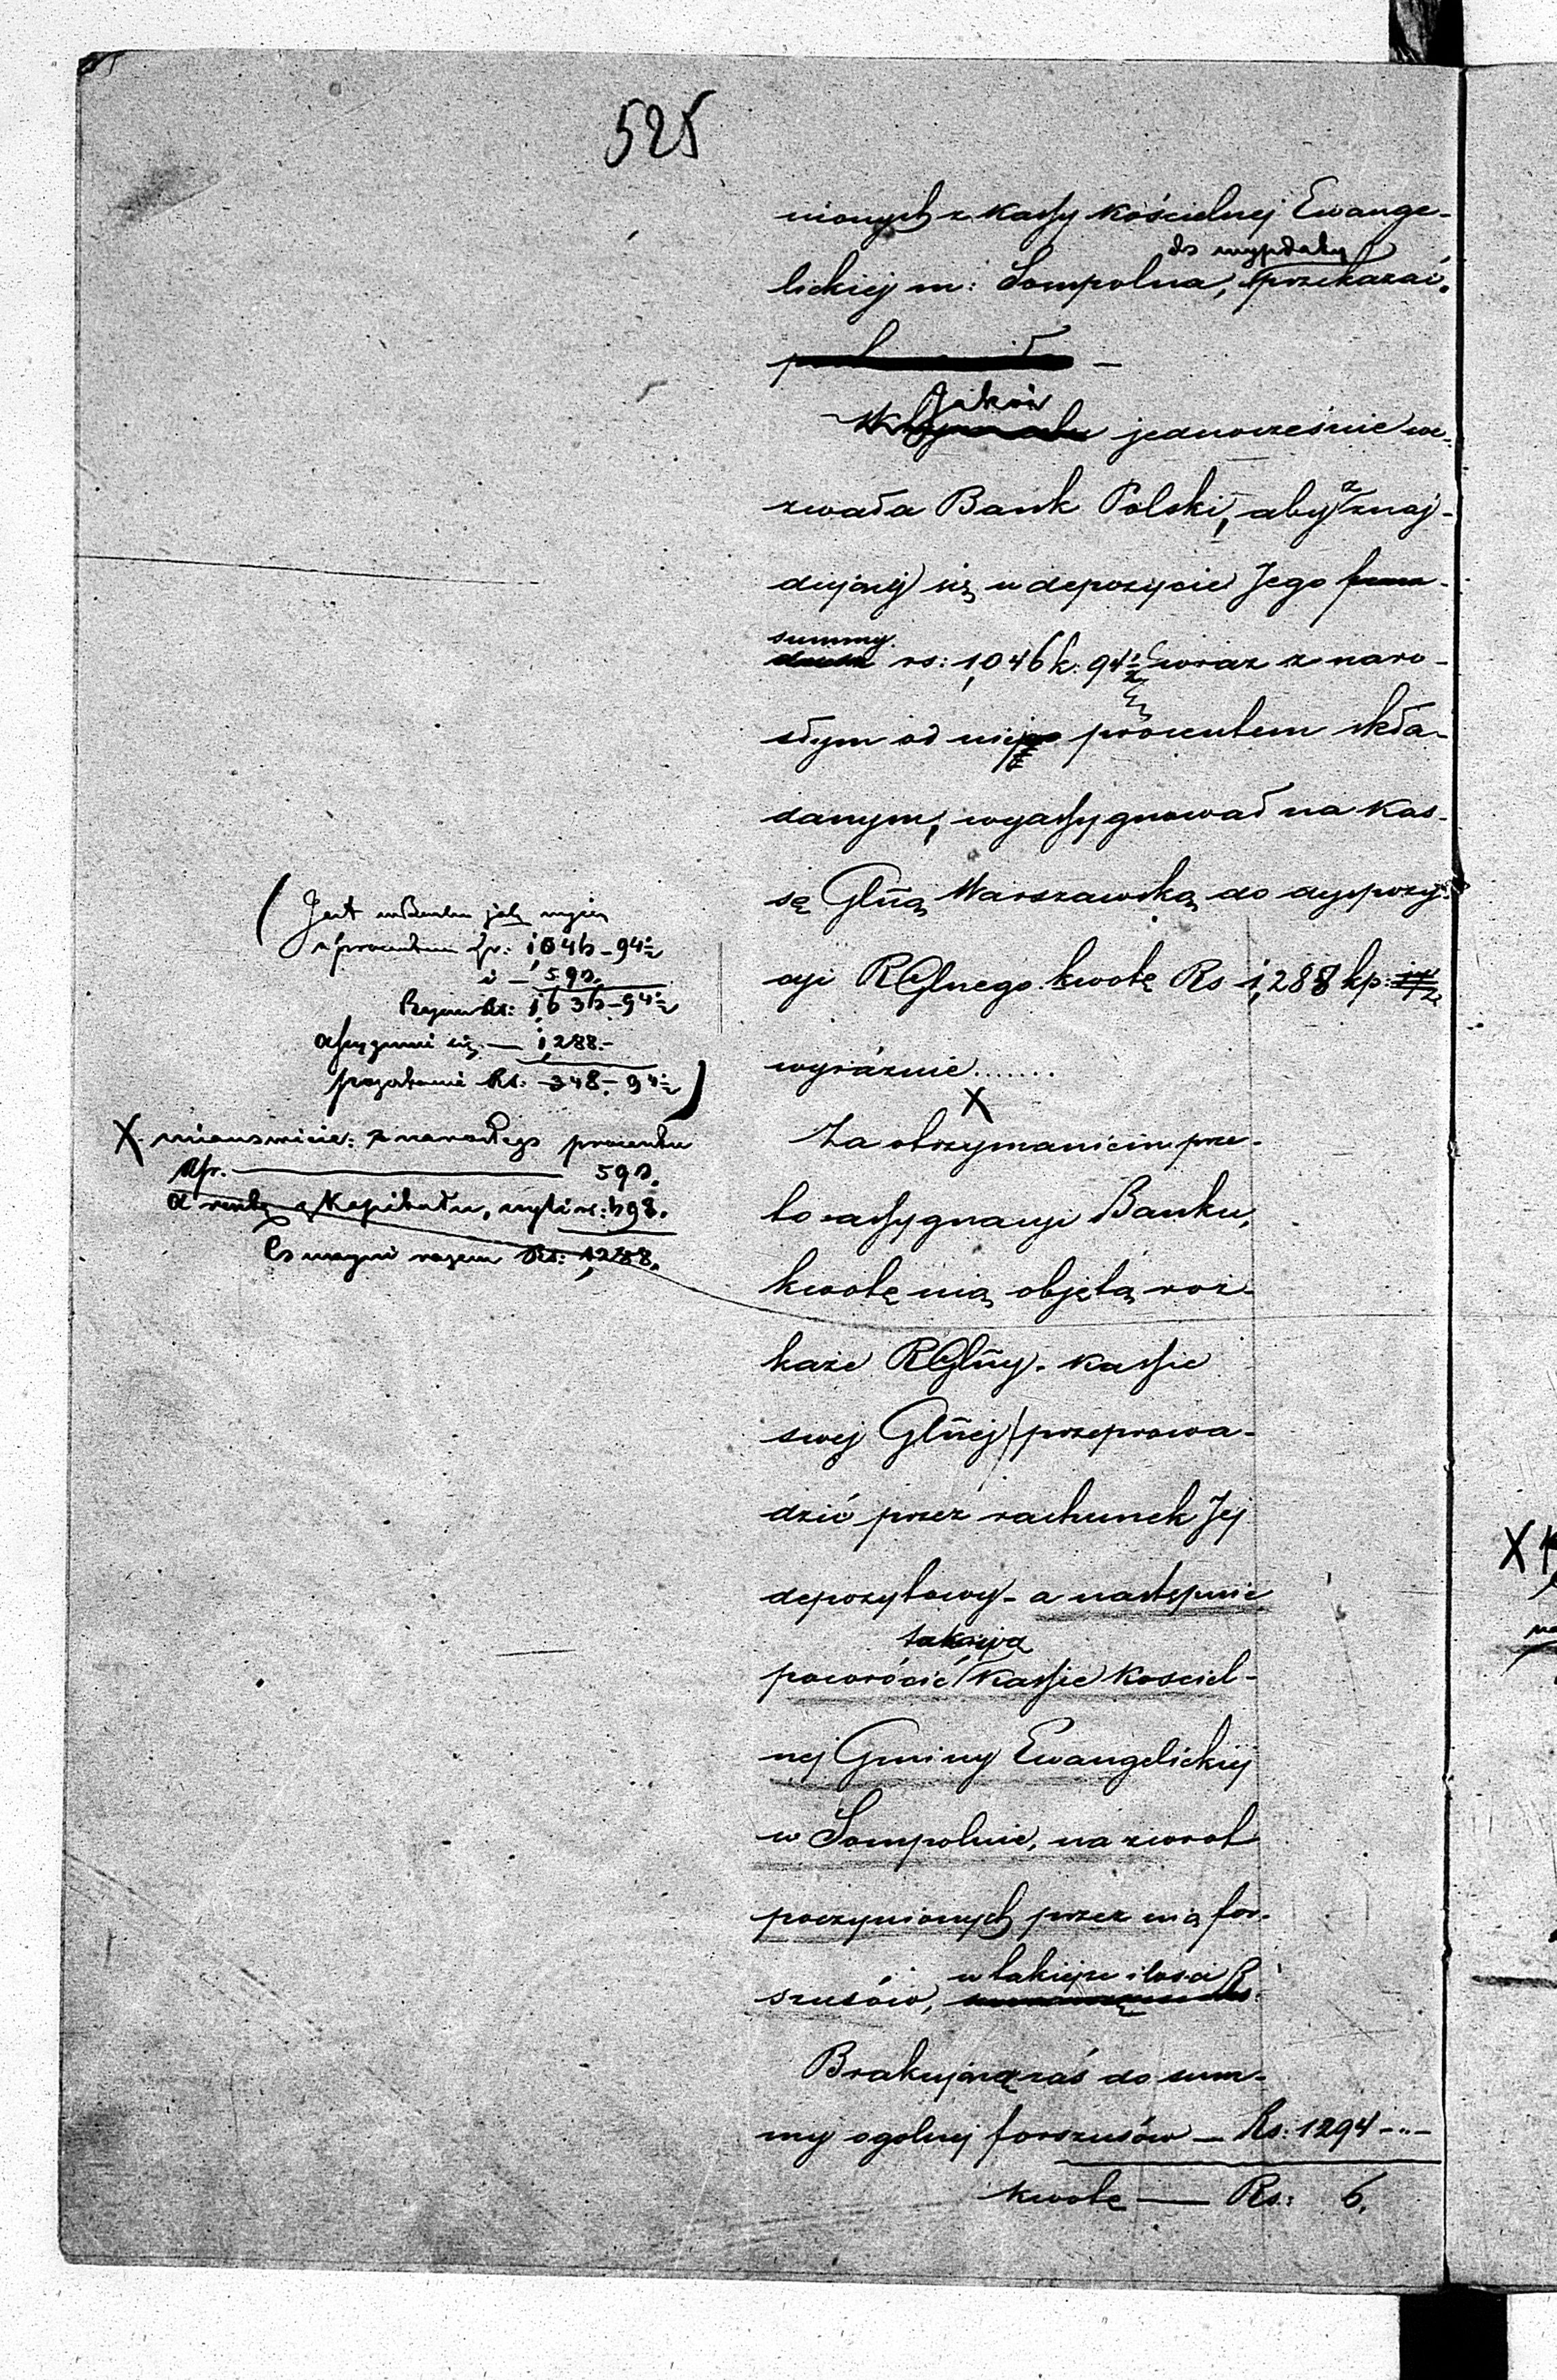 525
nionych z Kassy Kościelnej Ewange-
do wypłaty
lickiej m: Sompolna, przekazać.
Jakoż
jednocześnie we-
zwała Bank Polski, aby z znaj-
dującej się w depozycie Jego
summy
rs: 1,046 k. 94½ wraz z naro-
słym od niej procentem skła-
danym, wyassygnował na Kas-
sę Głną Warszawską do dyspozy-
cyi RGłnego kwotę Rs 1,288 kp:
wyraźnie.......
X
Za otrzymaniem prze-
to assygnacyi Banku,
kwotę nią objętą roz-
każe RGłny. Kassie
swej Głnej przeprowa-
dzić przez rachunek Jej
depozytowy - a następnie
takową
powrócić Kassie Kosciel-
nej Gminy Ewangelickiej
w Sompolnie, na zwrot
poczynionych przez nią for-
w takiejże ilości
szusów,
Brakującą zaś do sum-
my ogólnej forszusów — Rs: 1294 -..-
kwotę — Rs: 6.
(Jest w Banku jak wyżej
z procentem Rs. 1,046-94½
i — 590.
Razem Rs: 1,636-94½
Assygnuje się — 1,288.-
pozostanie Rs. 348.-94½)
X mianowicie: z narosłego procentu
Rs. — 590.
a resztę z Kapitału, czyli rs: 698.
Co czyni razem Rs: 1,288.